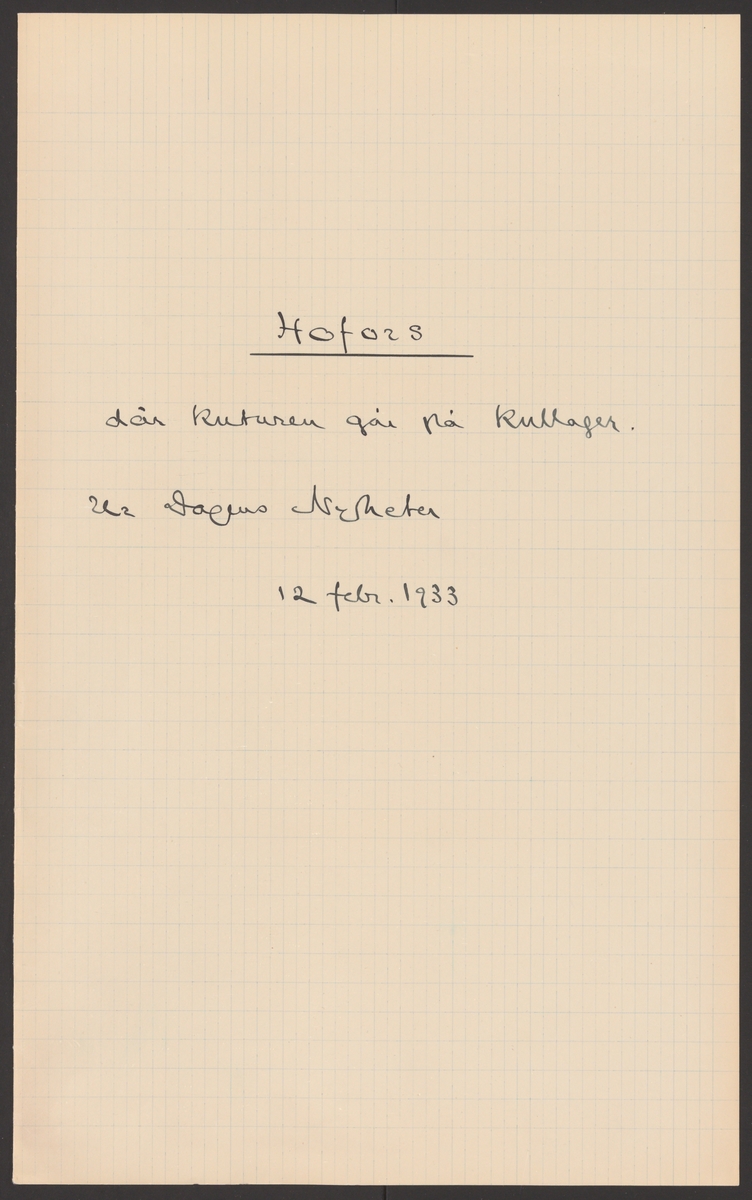 Hofors
där kuturen går på kullager.
Ur Dagens Nyheter
12 febr. 1933